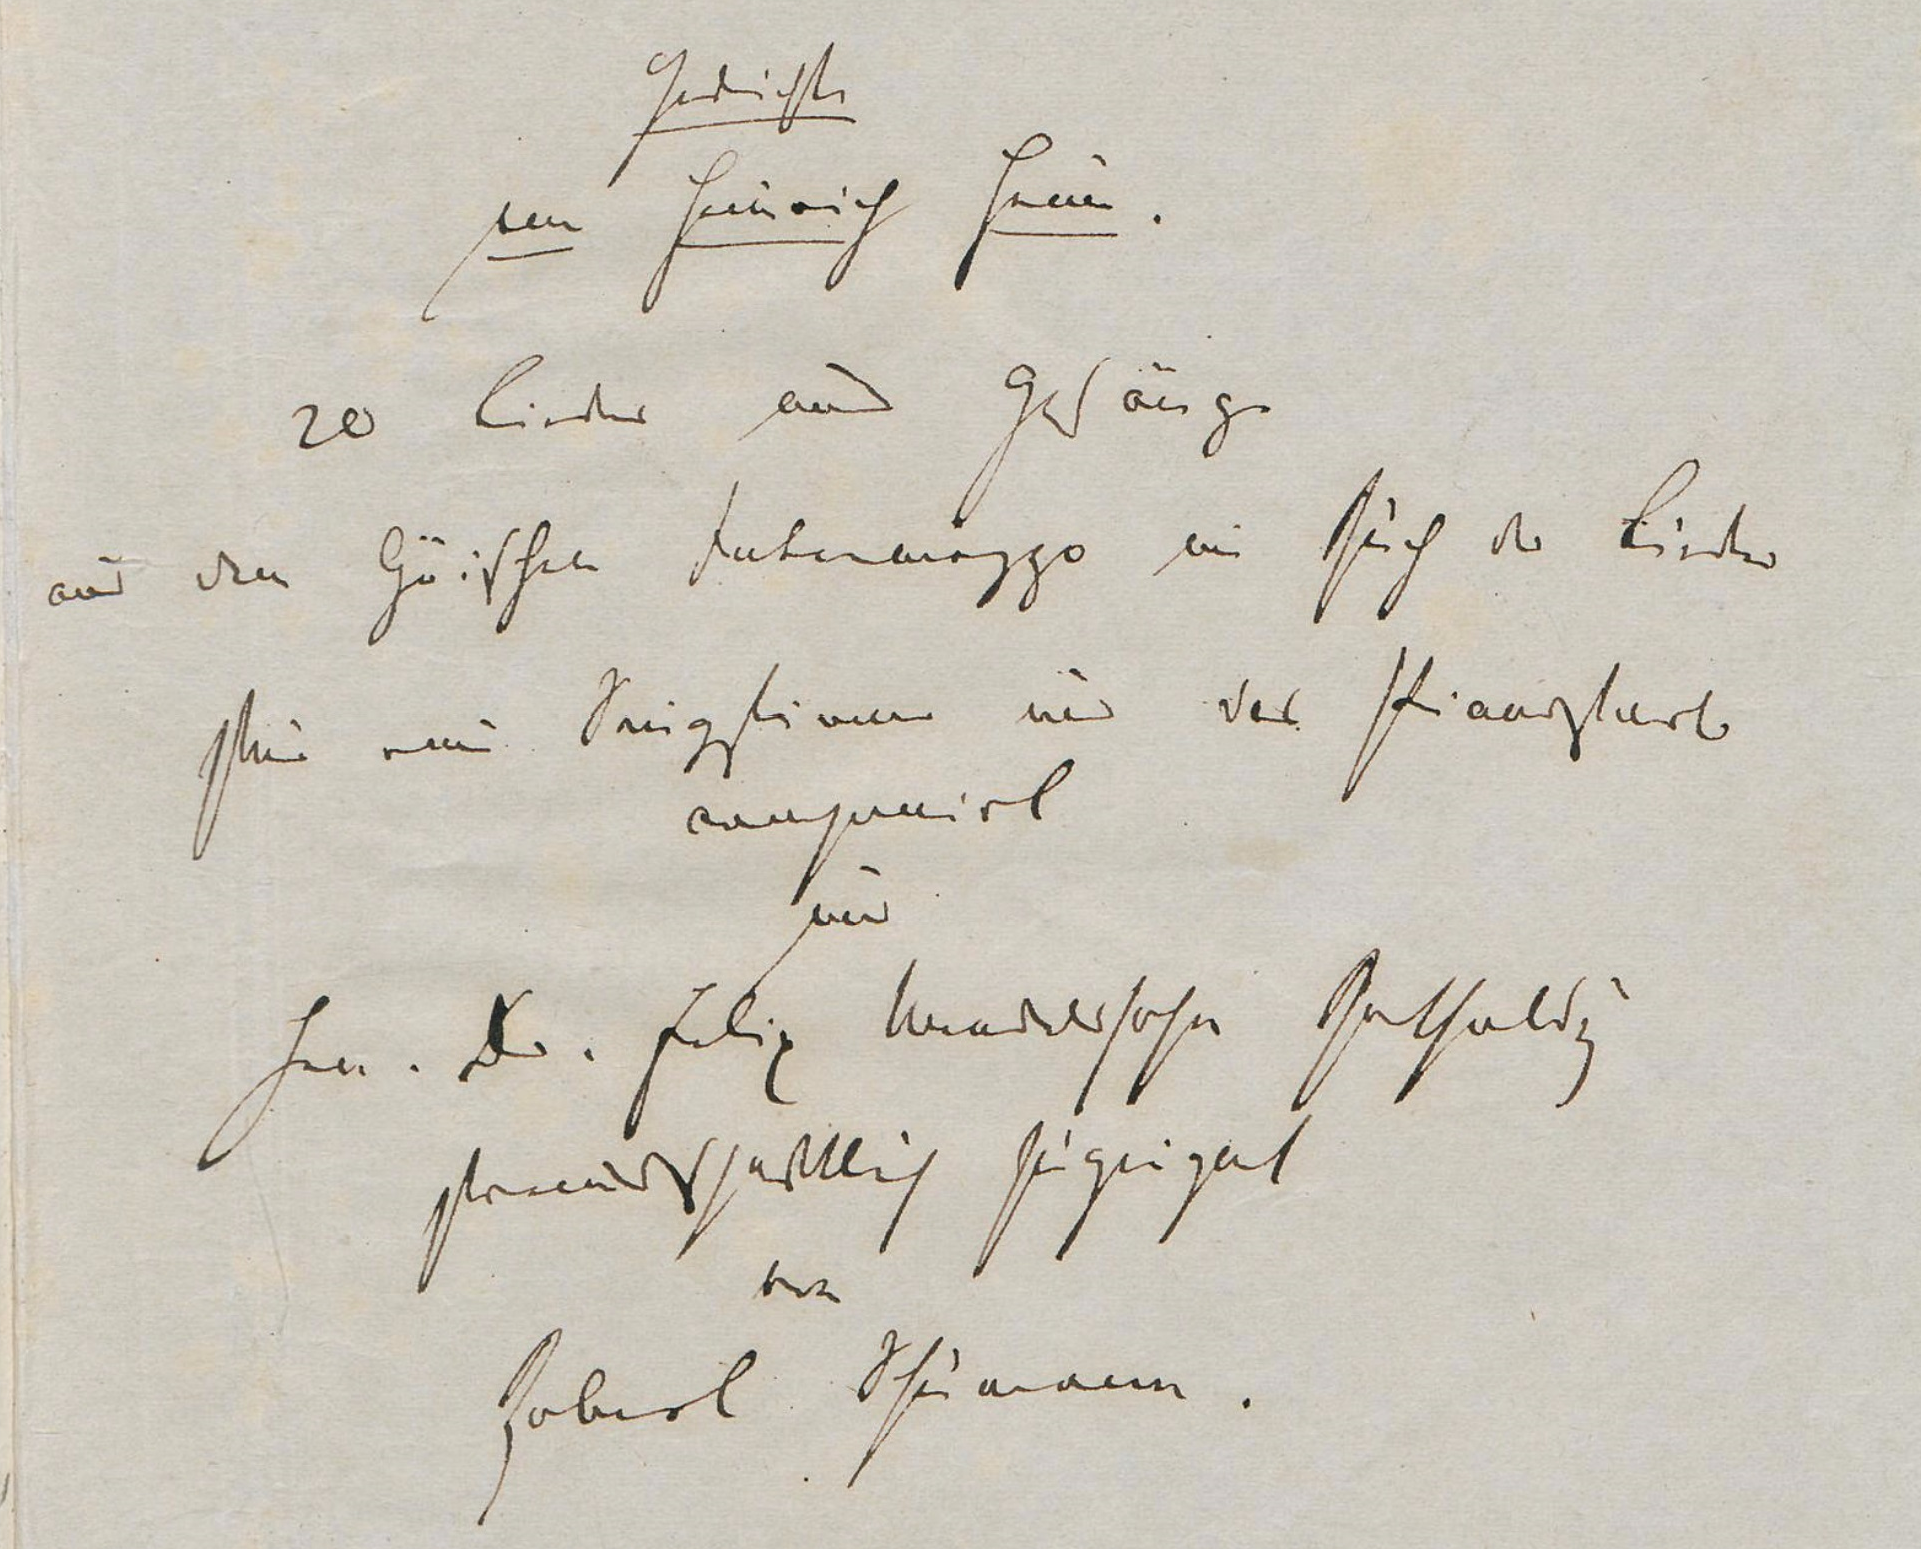 Gedichte
von Heinrich Heine.
20 Lieder und Gesänge
aus dem lyrischen Intermezzo im Buch der Lieder
für eine Singstimme und das Pianoforte
componirt
und
Hrn. Dr. Felix Mendelssohn Bartholdy
freundschaftlich zugeeignet
von
Robert Schumann.